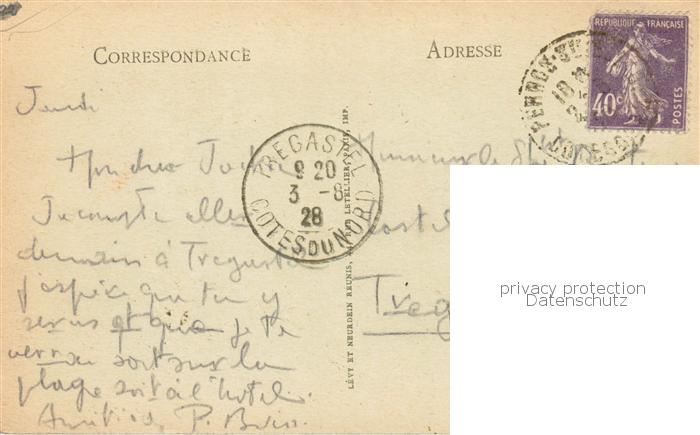 CORRESPONDANCE
ADRESSE
REPUBLIQUE FRANÇAISE
40c
POSTES
PERROS
TREGASTEL
9 20
3 -8
28
COTES DU NORD
LÉVY ET NEURDEIN REUNIS, LETELLIER, PARIS, IMP.
Jeudi
Mon cher
Monsieur le
Je compte aller
demain à Tregastel
j'espère que tu y
seras et que je te
verrai soit sur la
plage soit à l'hotel.
Amitiés, P.
Treg
privacy protection
Datenschutz